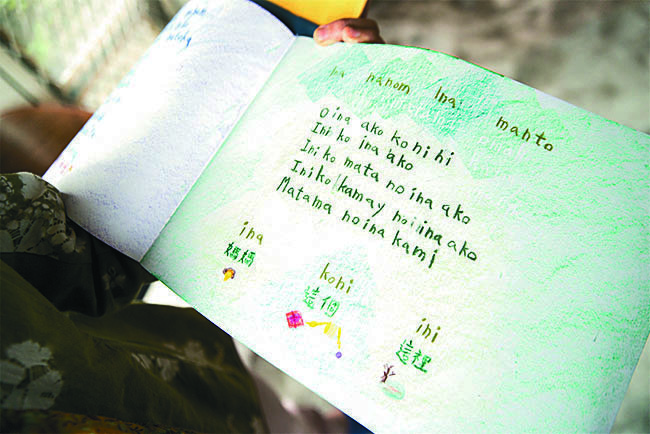 nanom Ina
O ina ako konihi
Ini ko ina ako
Ini ko mata no ina ako
Ini ko kamay no ina ako
Matama no ina kami
ina
媽媽
koni
這個
ini
這裡